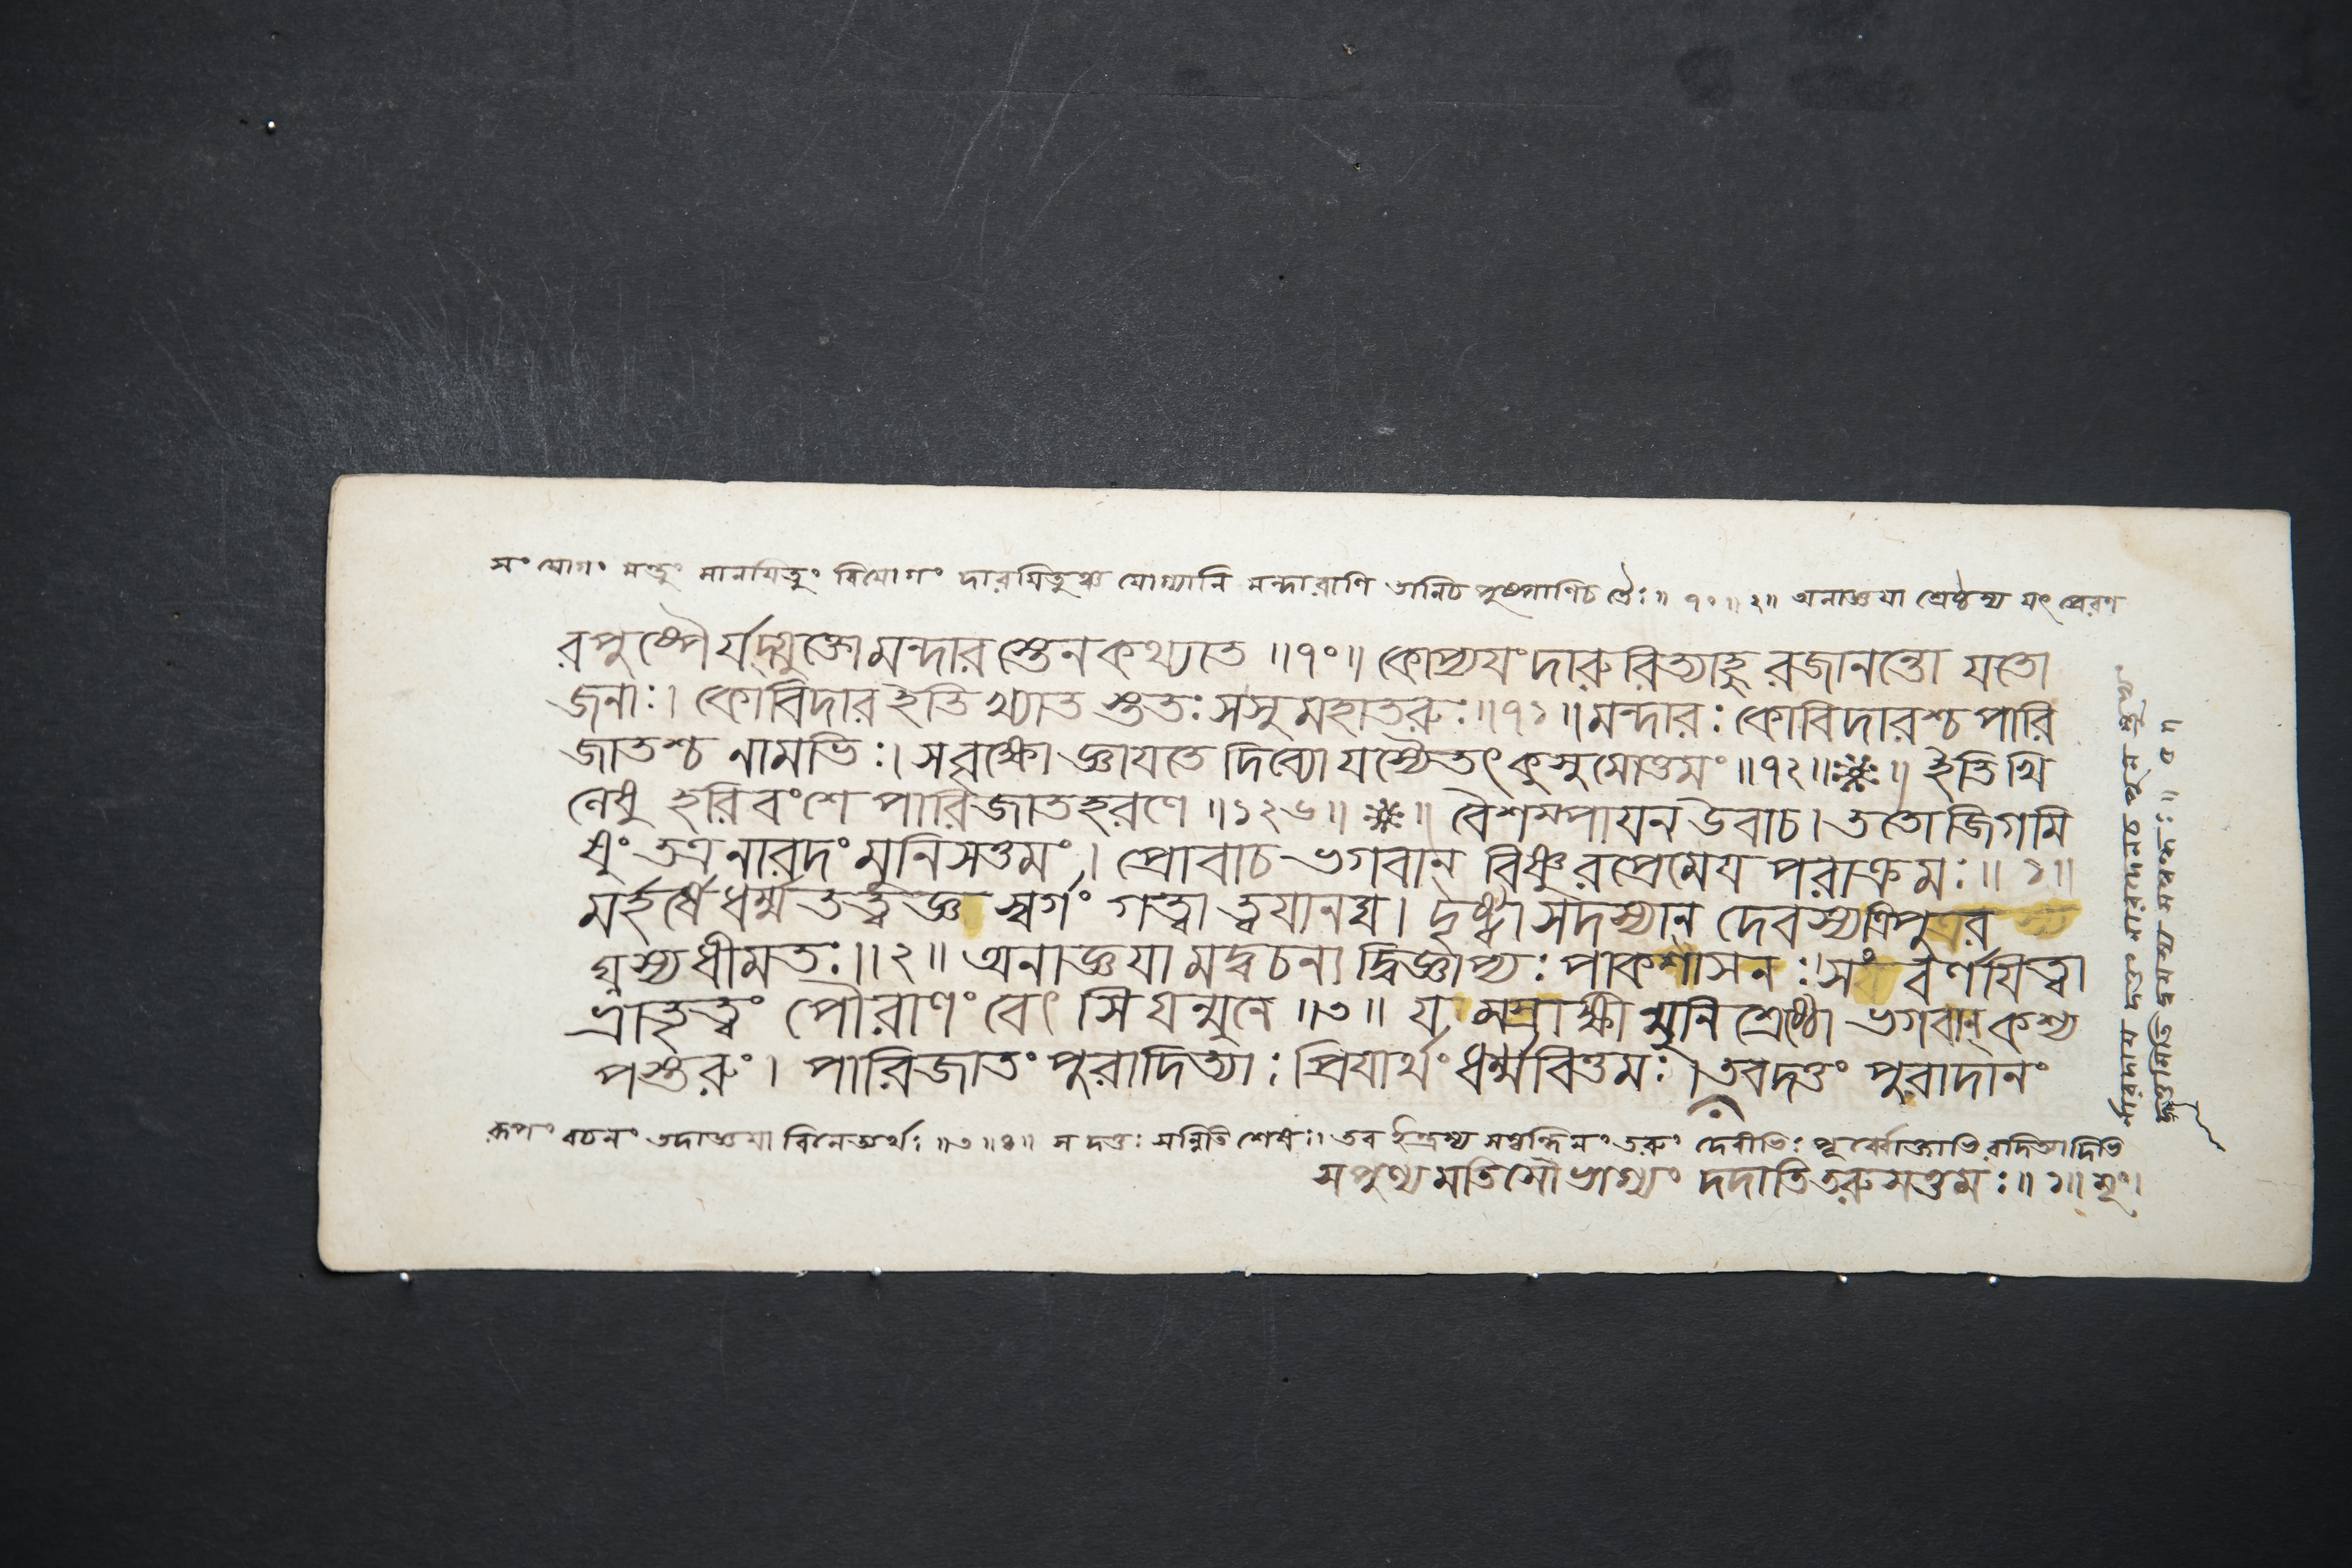 সংযোগং মন্তুং মানযিতুং বিযোগং দারযিতুঞ্চ যোগ্যানি মন্দারাণি তানিচ পুষ্পাণিচ তৈঃ॥ ৭০॥ ২॥ অনাজ্ঞযা শ্রেষ্ঠস্য যৎ প্রেরণ
রপুষ্পৈর্যদ্যুক্তো মন্দারস্তেন কথ্যাত ॥৭০॥ কোপ্যযং দারুরিত্যাহু রজানন্তো যতো
জনাঃ। কোবিদার ইতি খ্যাত স্ততঃ সসুমহাতরুঃ॥৭১॥ মন্দারঃ কোবিদারশ্চ পারি
জাতশ্চ নামভিঃ। সবৃক্ষো জ্ঞাযতে দিব্যো যস্যৈতৎ কুসুমোত্তমং ॥৭২॥ ॥ ইতি খি
লেষু হরিবংশে পারিজাতহরণে ॥১২৬॥ ॥ বৈশম্পাযন উবাচ। ততো জিগমি
ষুং তত্র নারদং মুনিসত্তমং। প্রোবাচ ভগবান্ বিষ্ণুরপ্রেমেয পরাক্রমঃ॥ ১॥
মর্হর্ষে ধর্ম্মতত্ত্বজ্ঞ স্বর্গং গত্বা ত্বযানঘ। দৃষ্ট্বা সদস্যান্ দেবস্য ত্রিপুর
ঘ্নস্য ধীমতঃ॥২॥ অনাজ্ঞযা মদ্বচন্য দ্বিজ্ঞাপ্যঃ পাকশাসনঃ। সং বর্ণযিত্বা
ভ্রাতৃত্বং পৌরাণং বেৎসি যন্মুনে ॥৩॥ য মস্রাক্ষী ন্মুনিশ্রেষ্ঠো ভগবান্ কশ্য
পস্তরুং। পারিজাতং পুরাদিত্যাঃ প্রিযার্থং ধর্ম্মবিত্তমঃ। তবদত্তং পুরাদানং
রূপং বচনং তদাজ্ঞযা বিনেত্যর্থঃ ॥৩॥৪॥ স দত্তঃ সন্নিতি শেষঃ। তব ইন্দ্রস্য সম্বন্ধিনং তরুং দেবীভিঃ পূর্ব্বোক্তাভি রদিত্যাদিভি
সপুণ্য মতিসৌভাগ্যং দদাতি তরুসত্তমঃ॥ ১॥ মূং।